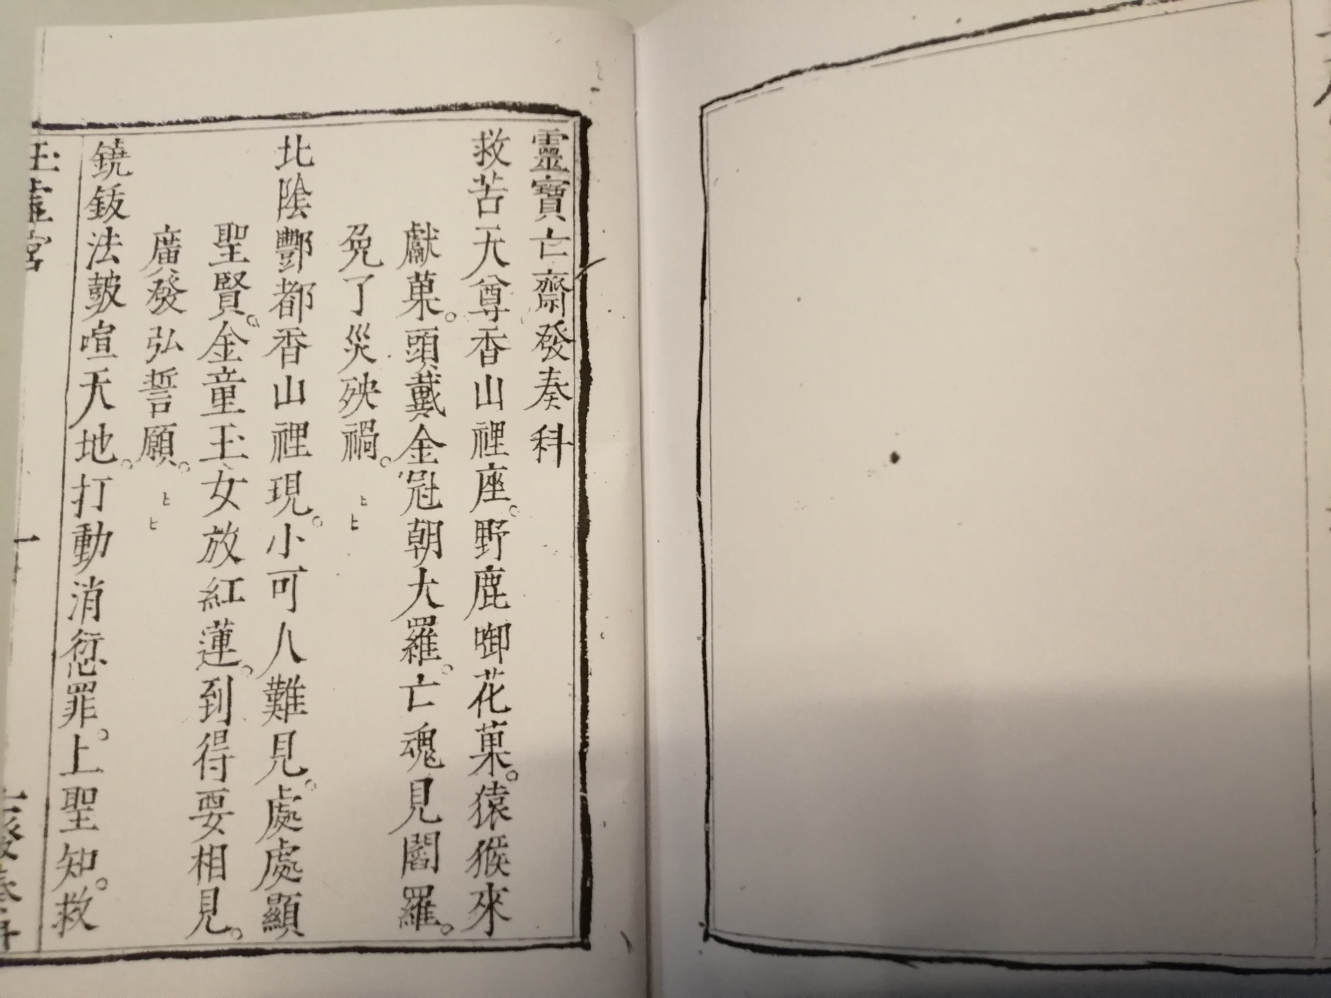 靈寶亡齋發奏科
救苦天尊香山裡座。野鹿啣花菓。猿猴來
獻菓。頭戴金冠朝大羅。亡魂見閻羅。
免了災殃禍。〻〻
北陰酆都香山裡現。小可人難見。處處顯
聖賢。金童玉女放紅蓮。到得要相見。
廣發弘誓願。〻〻
鐃鈸法鼓喧天地。打動消愆罪。上聖知。救
玉虛宮 一